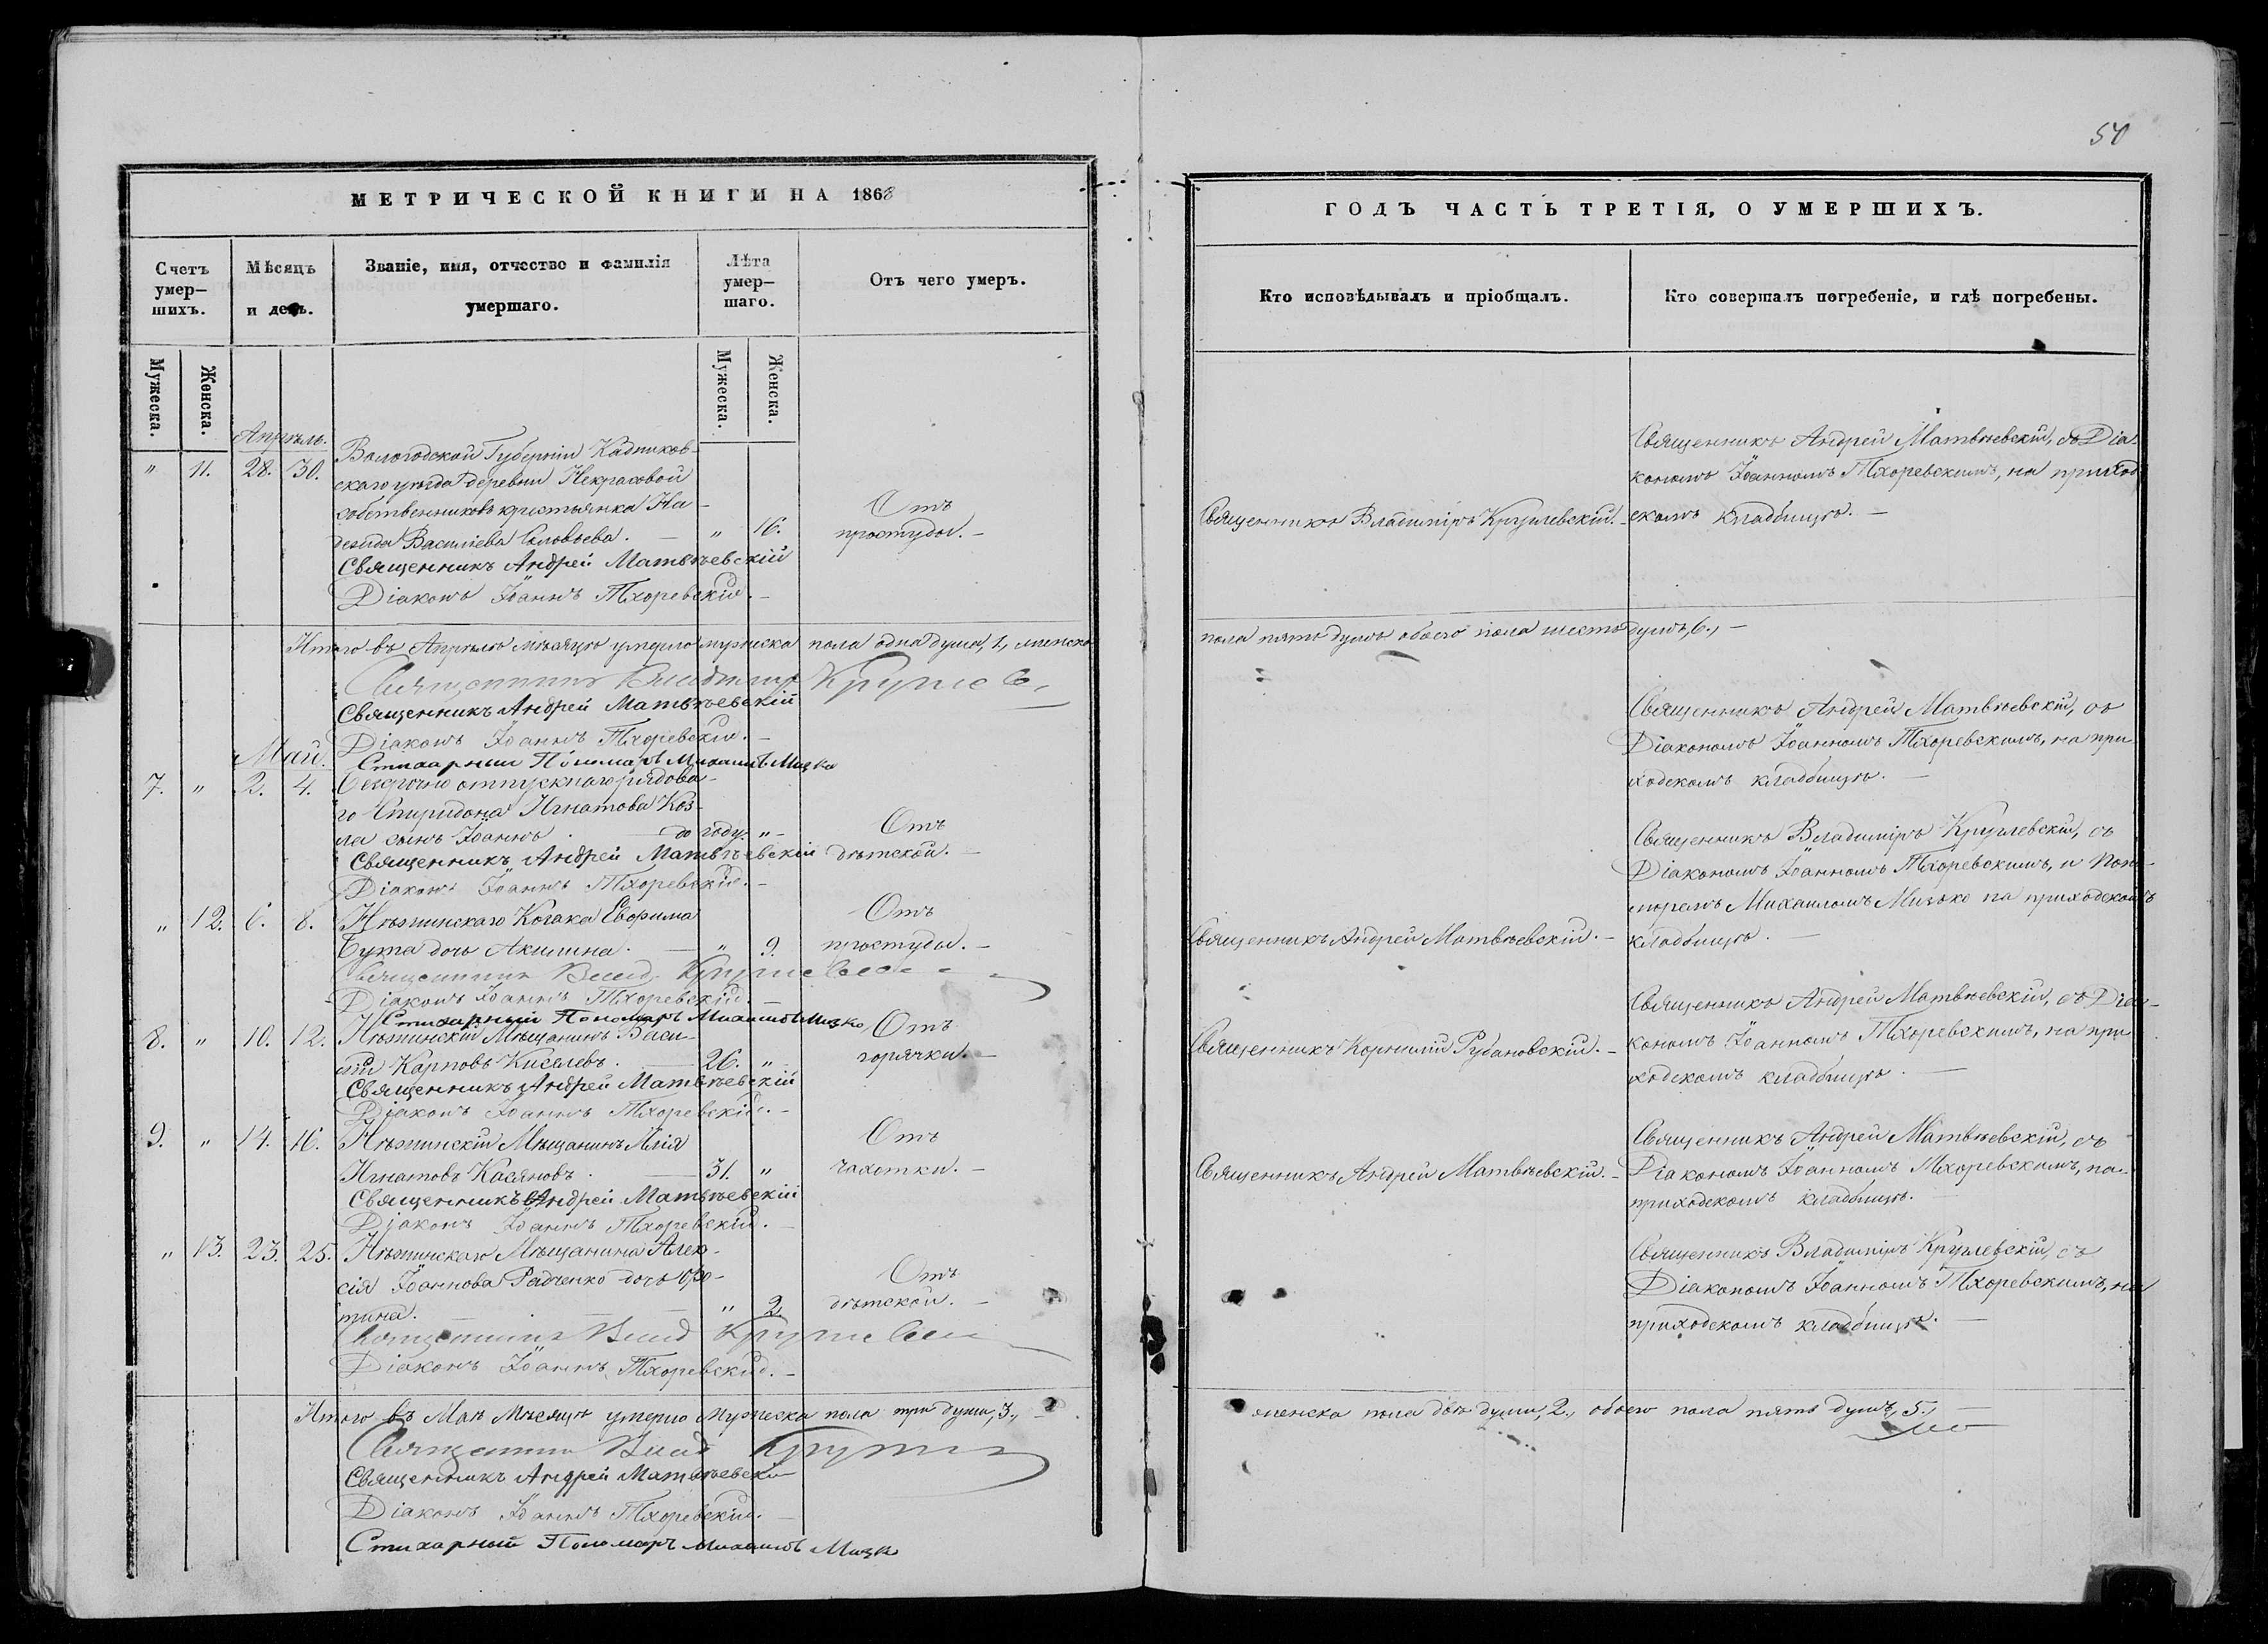 54
МЕТРИЧЕСКОЙ КНИГИ НА 1868
ГОДЪ ЧАСТЬ ТРЕТІЯ, О УМЕРШИХЪ.
Счетъ умер-шихъ.
Мѣсяцъ и день.
Званіе, имя, отчество и фамилія умершаго.
Лѣта умер-шаго.
Отъ чего умеръ.
Кто исповѣдывалъ и пріобщалъ.
Кто совершалъ погребеніе, и гдѣ погребены.
Мужеска.
Женска.
Мужеска.
Женска.
Апрѣль.
" 11. 28. 30.
Вологодской Губерніи Кадников-
скаго уѣзда деревни Некрасовой
собственниковъ крестьянка На-
дежда Василіева Соловьева. — " 16.
Отъ
простуды. —
Священникъ Владиміръ Круглевскій. —
Священникъ Андрей Матвѣевскій, съ Діа-
кономъ Іоанномъ Тхоревскимъ, на приход-
скомъ кладбищѣ. —
Священникъ Андрей Матвѣевскій
Діаконъ Іоаннъ Тхоревскій. —
Итого въ Апрѣлѣ мѣсяцѣ умерло мужеска пола одна душа, 1, женска
пола пять душъ обоего пола шесть душъ, 6., —
Священникъ Владимір
Священникъ Андрей Матвѣевскій
Діаконъ Іоаннъ Тхоревскій. —
Стихарный Пономарь Михаилъ Мизко
Май.
7. " 2. 4.
Безсрочно отпускнаго рядова-
го Спиридона Игнатова Коз-
ла сынъ Іоаннъ. — до году. " —
Отъ
дѣтской. —
Священникъ Андрей Матвѣевскій, съ
Діакономъ Іоанномъ Тхоревскимъ, на при-
ходскомъ кладбищѣ. —
Священникъ Андрей Матвѣевскій
Діаконъ Іоаннъ Тхоревскій. —
" 12. 6. 8.
Нѣжинскаго Козака Евфима
Бута дочь Акилина. — " 9.
Отъ
простуды. —
Священникъ Андрей Матвѣевскій. —
Священникъ Владиміръ Круглевскій, съ
Діакономъ Іоанномъ Тхоревскимъ, и Поно-
маремъ Михаиломъ Мизько на приходскомъ
кладбищѣ. —
Священникъ Влад.
Діаконъ Іоаннъ Тхоревскій. —
Стихарный Пономарь Михаилъ Мизко
8. " 10. 12.
Нѣжинскій Мѣщанинъ Васи-
лій Карповъ Киселевъ. — 26. "
Отъ
горячки. —
Священникъ Корнилій Рубановскій. —
Священникъ Андрей Матвѣевскій, съ Діа-
кономъ Іоанномъ Тхоревскимъ, на при-
ходскомъ кладбищѣ. —
Священникъ Андрей Матвѣевскій
Діаконъ Іоаннъ Тхоревскій. —
9. " 14. 16.
Нѣжинскій Мѣщанинъ Илія
Игнатовъ Касяновъ. — 31. "
Отъ
чахотки. —
Священникъ Андрей Матвѣевскій. —
Священникъ Андрей Матвѣевскій, съ
Діакономъ Іоанномъ Тхоревскимъ, на-
приходскомъ кладбищѣ. —
Священникъ Андрей Матвѣевскій
Діаконъ Іоаннъ Тхоревскій. —
" 13. 23. 25.
Нѣжинскаго Мѣщанина Алек-
сія Іоаннова Радченко дочь
тина. — " 2.
Отъ
дѣтской. —
Священникъ Владиміръ Круглевскій, съ
Діакономъ Іоанномъ Тхоревскимъ, на
приходскомъ кладбищѣ. —
Священникъ Влад
Діаконъ Іоаннъ Тхоревскій. —
Итого въ Маѣ Мѣсяцѣ умерло Мужеска пола три души, 3., —
женска пола двѣ души, 2., обоего пола пять душъ, 5., —
Священникъ Влад
Священникъ Андрей Матвѣевскій
Діаконъ Іоаннъ Тхоревскій. —
Стихарный Пономарь Михаилъ Мизко